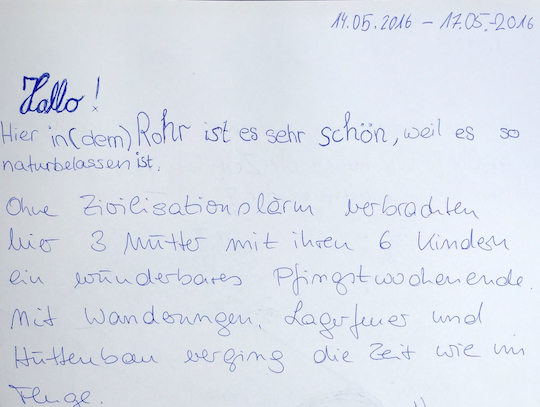 14.05.2016 – 17.05.-2016
Hallo!
Hier in(dem) Rohr ist es sehr schön, weil es so
naturbelassen ist.
Ohne Zivilisationslärm verbrachten
hier 3 Mütter mit ihren 6 Kindern
ein wunderbares Pfingstwochenende.
Mit Wanderungen, Lagerfeuer und
Hüttenbau verging die Zeit wie im
Fluge.